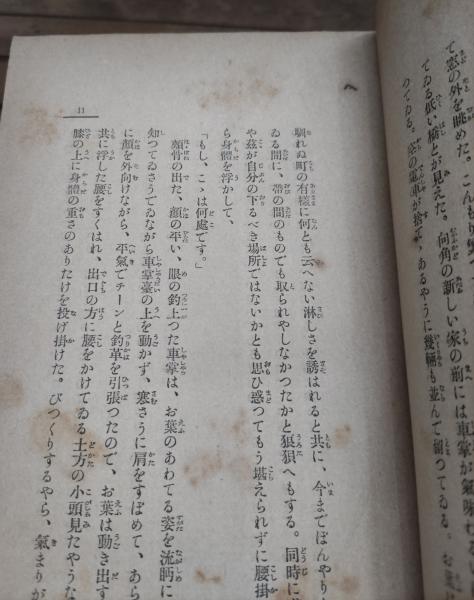 て窓の外を眺めた。こんもり
てゐる低い橋とが見えた。向角の新しい家の前には車掌が氣味
つてゐる。空の電車が捨てゝあるやうに幾輛も並んで留つてゐる。お葉
馴れぬ町の有樣に何とも云へない淋しさを誘はれると共に、今までぼんやり
ゐる間に、帶の間のものでも取られやしなかつたかと狼狽へもする。同時に
や茲が自分の下るべき場所ではないかとも思ひ惑つてもう堪えられずに腰掛
ら身體を浮かして、
「もし、こゝは何處です。」
頰骨の出た、顏の平い、眼の釣上つた車掌は、お葉のあわてる姿を流眄に
知つてゐさうでゐながら車掌臺の上を動かず、寒さうに肩をすぼめて、あら
に顏を外向けながら、平氣でチーンと釣革を引張つたので、お葉は動き出す
共に浮した腰をすくはれ、出口の方に腰をかけてゐる土方の小頭見たやうな
膝の上に身體の重さのありたけを投げ掛けた。びつくりするやら、氣まりが
11